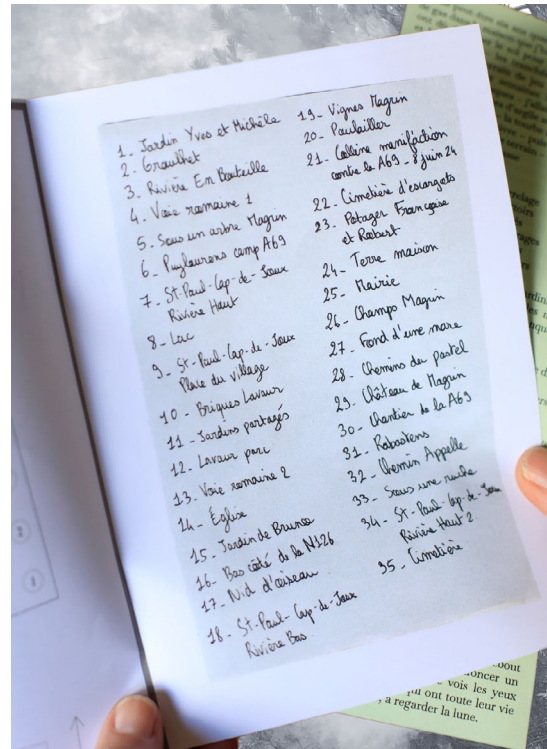 1_ Jardin Yves et Michèle
2_ Graulhet
3_ Rivière En Bouteille
4_ Voie romaine 1
5_ Sous un arbre Magrin
6_ Puylaurens camp A69
7_ St-Paul-Cap-de-Joux
Rivière Haut
8_ Lac
9_ St-Paul-Cap-de-Joux
Place du village
10_ Briques Lavaur
11_ Jardins partagés
12_ Lavaur parc
13_ Voie romaine 2
14_ Église
15_ Jardin de Bruno
16_ Bas côté de la N126
17_ Nid d'oiseau
18_ St-Paul-Cap-de-Joux
Rivière Bas
19_ Vignes Magrin
20_ Poulailler
21_ Colline manifaction
contre la A69 - 8 juin 24
22_ Cimetière d'escargots
23_ Potager Françoise
et Robert
24_ Terre maison
25_ Mairie
26_ Champs Magrin
27_ Fond d'une mare
28_ Chemins du pastel
29_ Château de Magrin
30_ Chantier de la A69
31_ Rabastens
32_ Chemin Appelle
33_ Sous une ruche
34_ St-Paul-Cap-de-Joux
Rivière Haut 2
35_ Cimetière
bout
oncer un
vois les yeux
qui ont toute leur vie
, à regarder la lune.